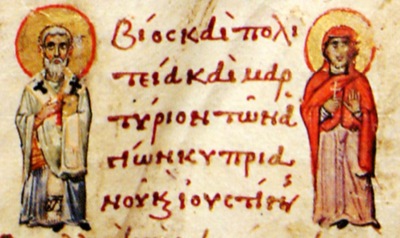 βίος καὶ πολι
τεία καὶ μαρ
τύριον τῶν ἁ
γίων κυπρια
νοῦ κ ιουστίνης